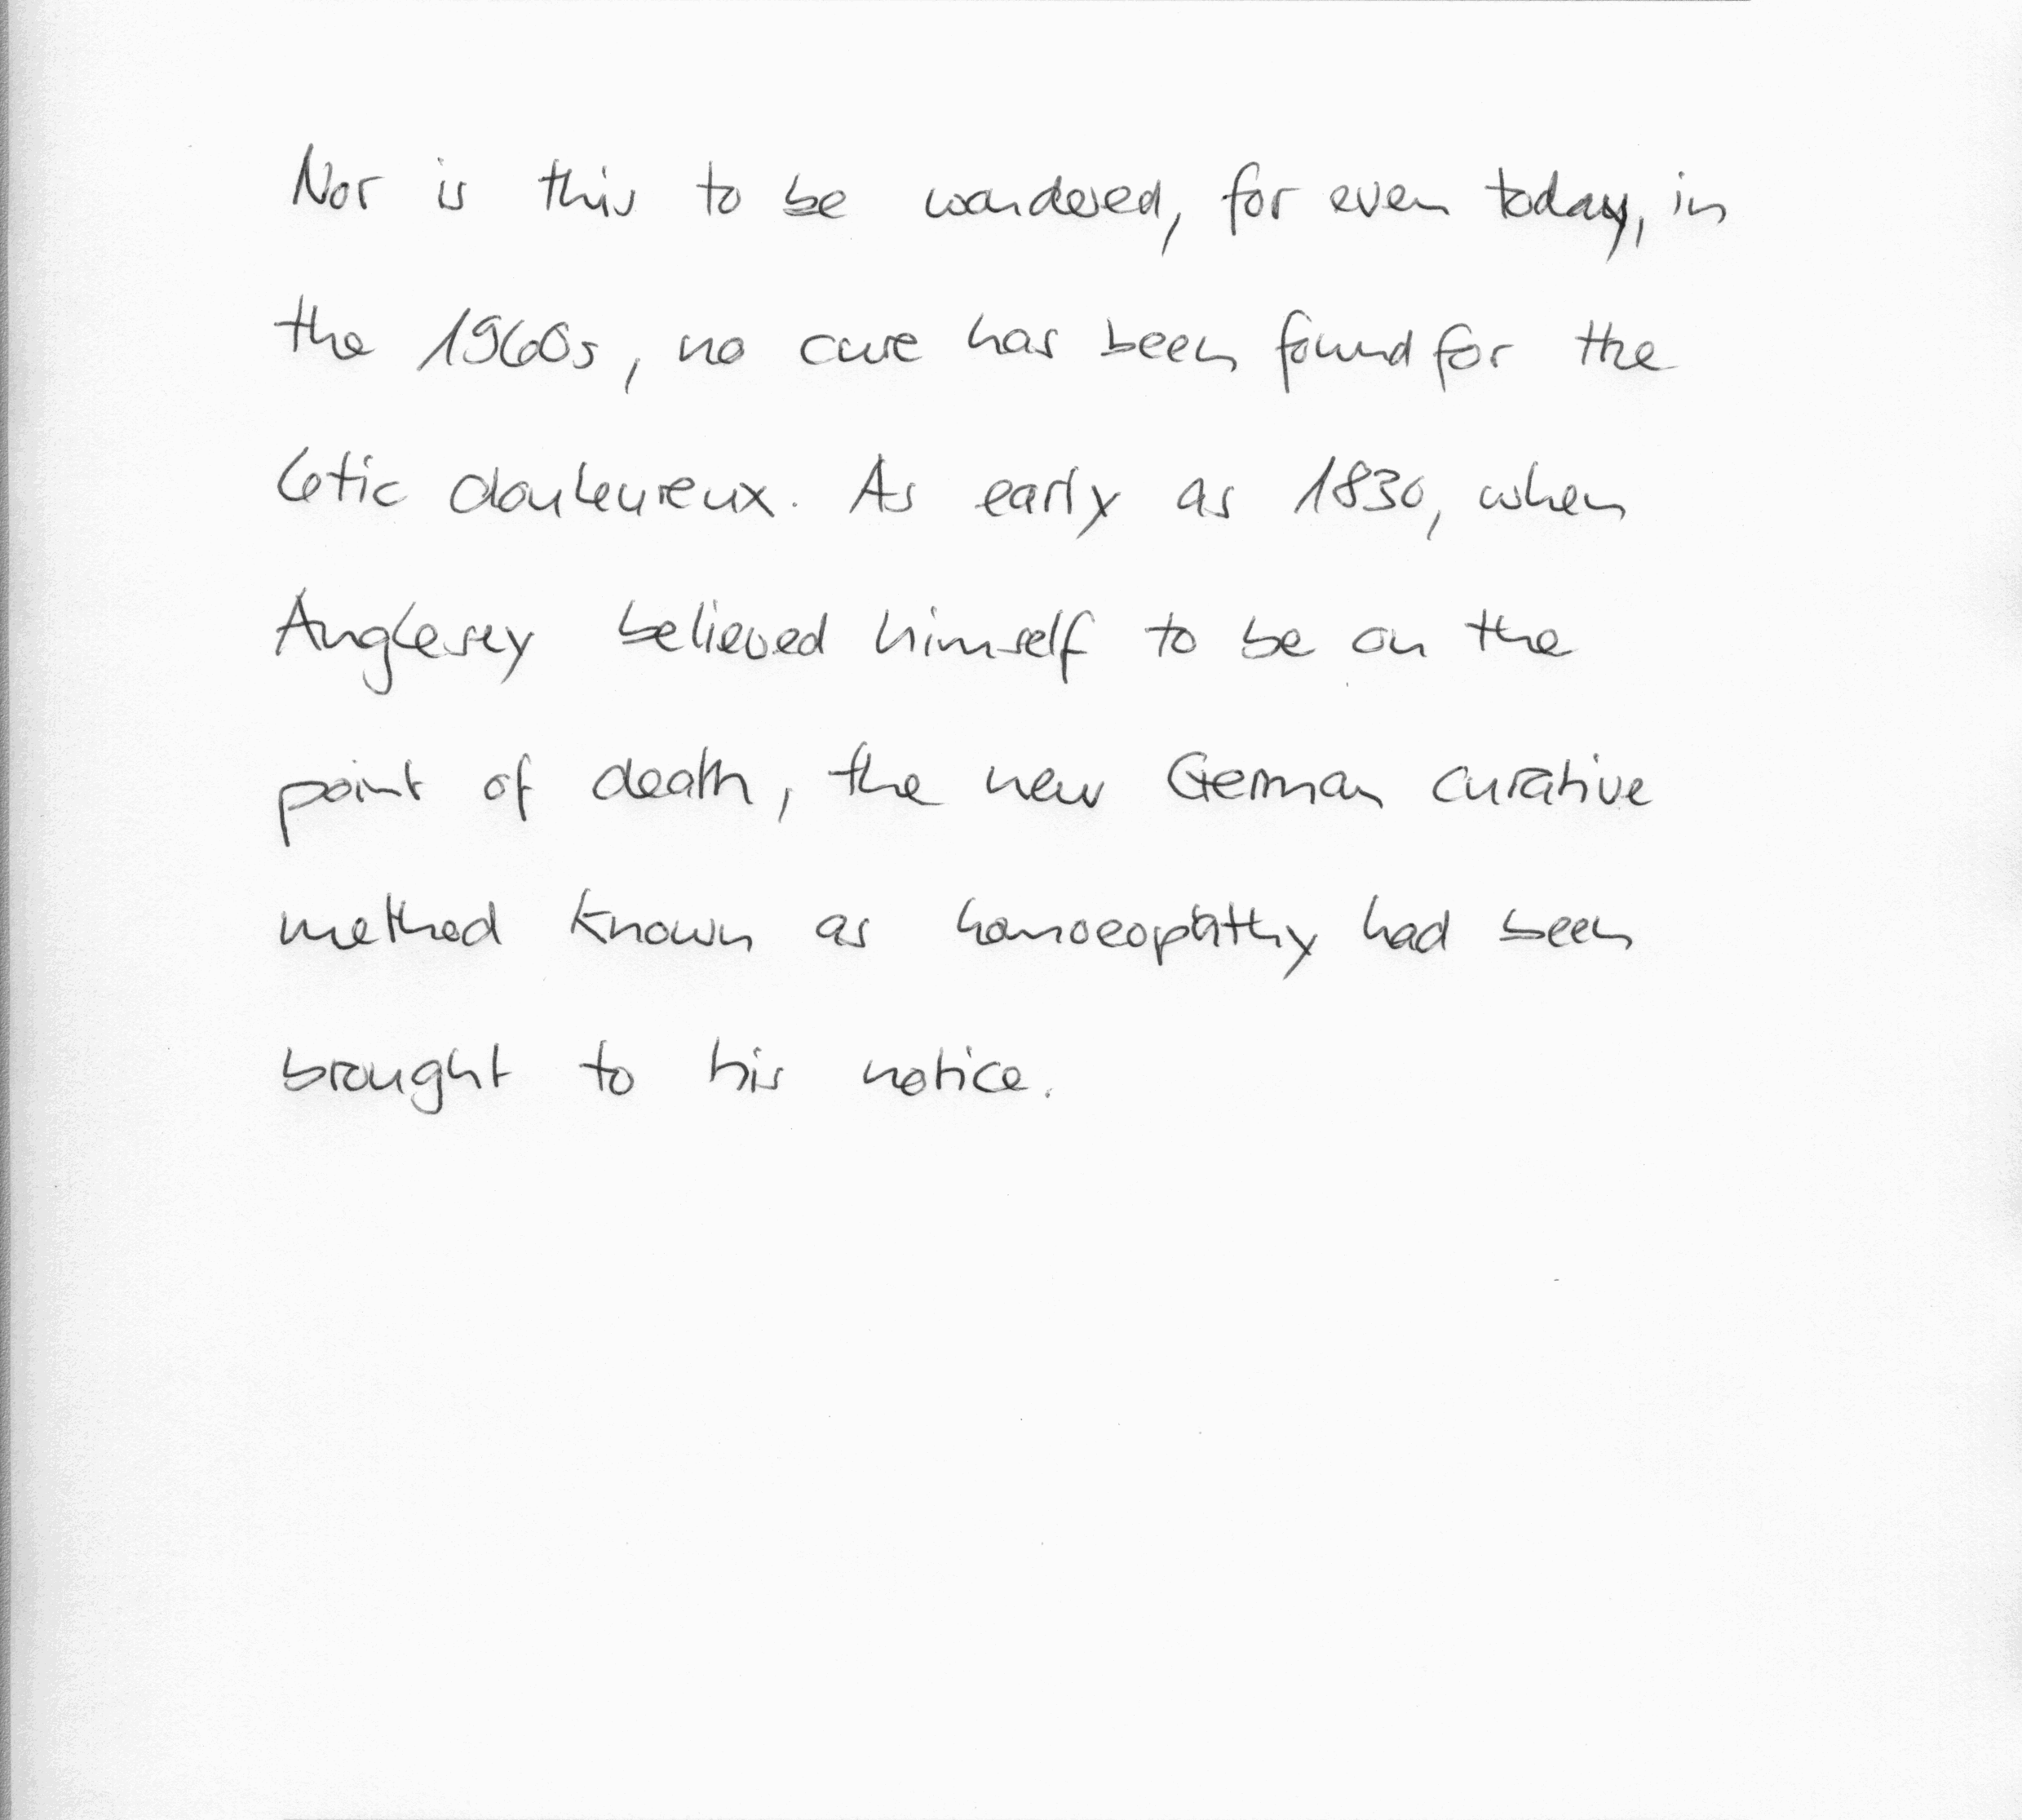 Nor is this to be wondered, for even today, in
the 1960s, no cure has been found for the
letic douleureux. As early as 1830, when
Anglesey believed himself to be on the
point of death, the new German curative
method known as homoeopathy had been
brought to his notice.